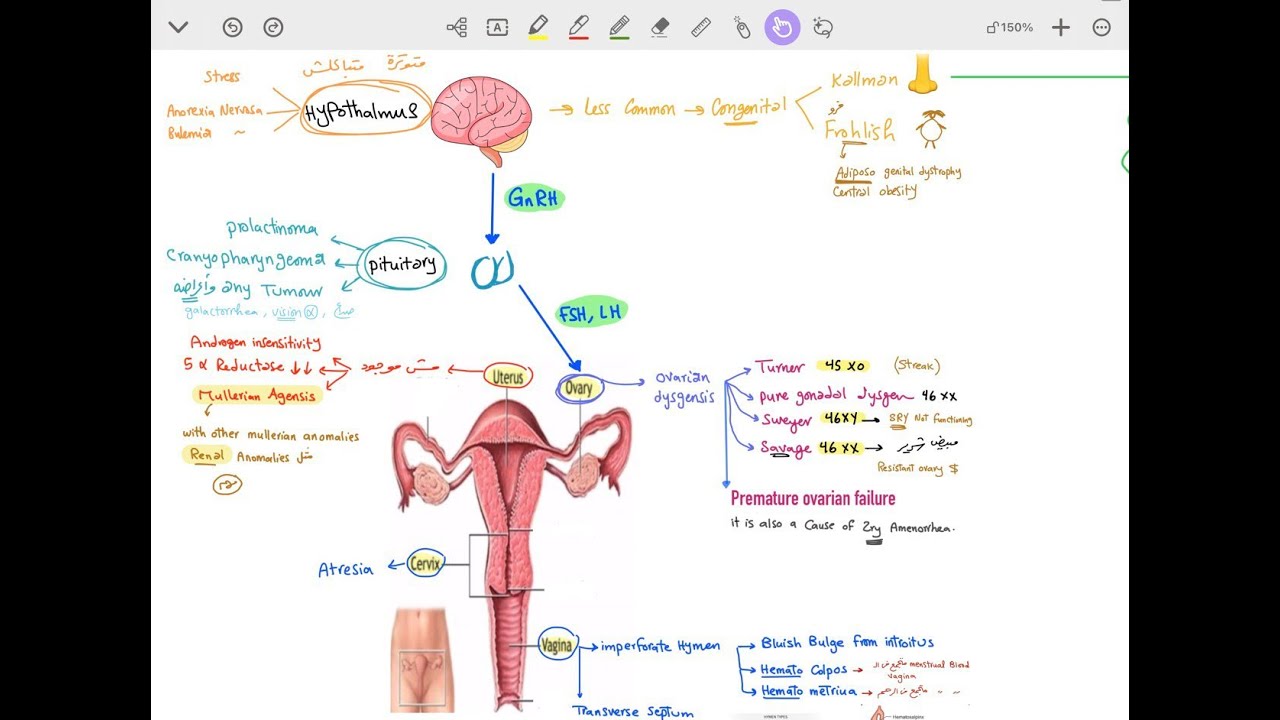 150%
Stress
متوترة متباكلش
Anorexia Nervosa
Bulemia ~
Hypothalmus
→ Less Common → Congenital
Kallman
Frohlish
Adiposo genital dystrophy
Central obesity
GnRH
prolactinoma
Cranyopharyngeoma
any Tumour
galactorrhea, vision
pituitary
FSH, LH
Androgen insensitivity
5 α Reductase ↓↓
Mullerian Agensis
مش موجود
Uterus
Ovary
with other mullerian anomalies
Renal Anomalies مثل
ovarian
dysgensis
Turner 45 XO (Streak)
pure gonadal dysgen 46 XX
Sweyer 46XY → SRY Not functioning
Savage 46 XX → مبيض شرير
Resistant ovary $
Premature ovarian failure
it is also a Cause of 2ry Amenorrhea.
Atresia ← Cervix
Vagina
→ imperforate Hymen
Transverse Septum
Bluish Bulge from introitus
Hemato Colpos → متجمع في ال menstrual Blood
vagina
Hemato metriua →
HYMEN TYPES
Hematosalpinx